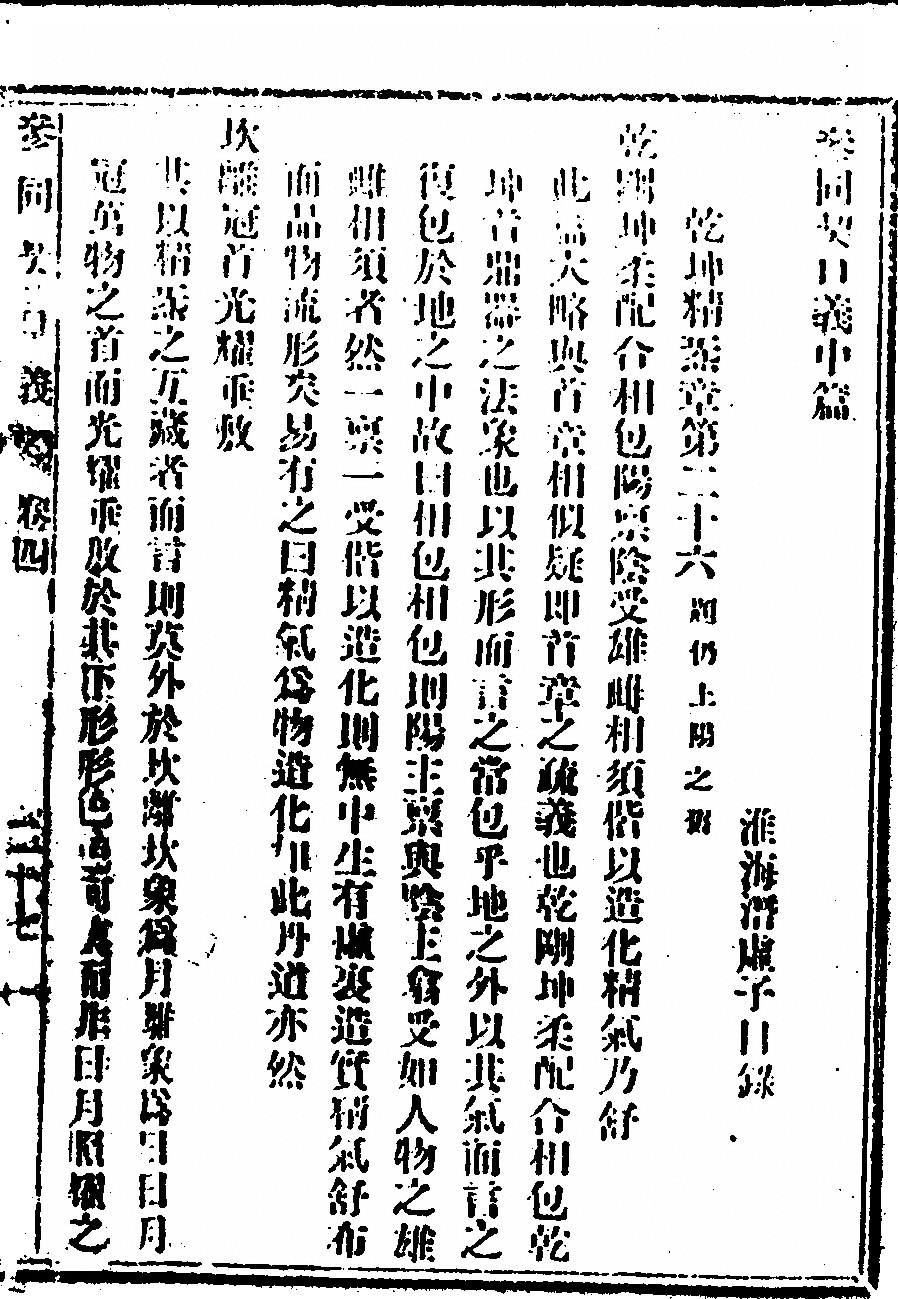 參同契口義中篇
淮海潛虛子口錄
乾坤精炁章第二十六題仍上陽之舊
乾剛坤柔配合相包陽稟陰受雄雌相須偕以造化精氣乃舒
此篇大略與首章相似疑即首章之疏義也乾剛坤柔配合相包乾
坤者鼎器之法象也以其形而言之常包乎地之外以其氣而言之
復包於地之中故曰相包相包則陽主稟與陰主翕受如人物之雄
雌相須者然一稟一受偕以造化則無中生有虛裏造實精氣舒布
而品物流形矣易有之曰精氣爲物造化如此丹道亦然
坎離冠首光耀垂敷
其以精炁之互藏者而言則莫外於坎離坎象爲月離象爲日日月
冠萬物之首而光耀垂敷於其下形形色色何者而非日月照耀之
參同契口義 卷四